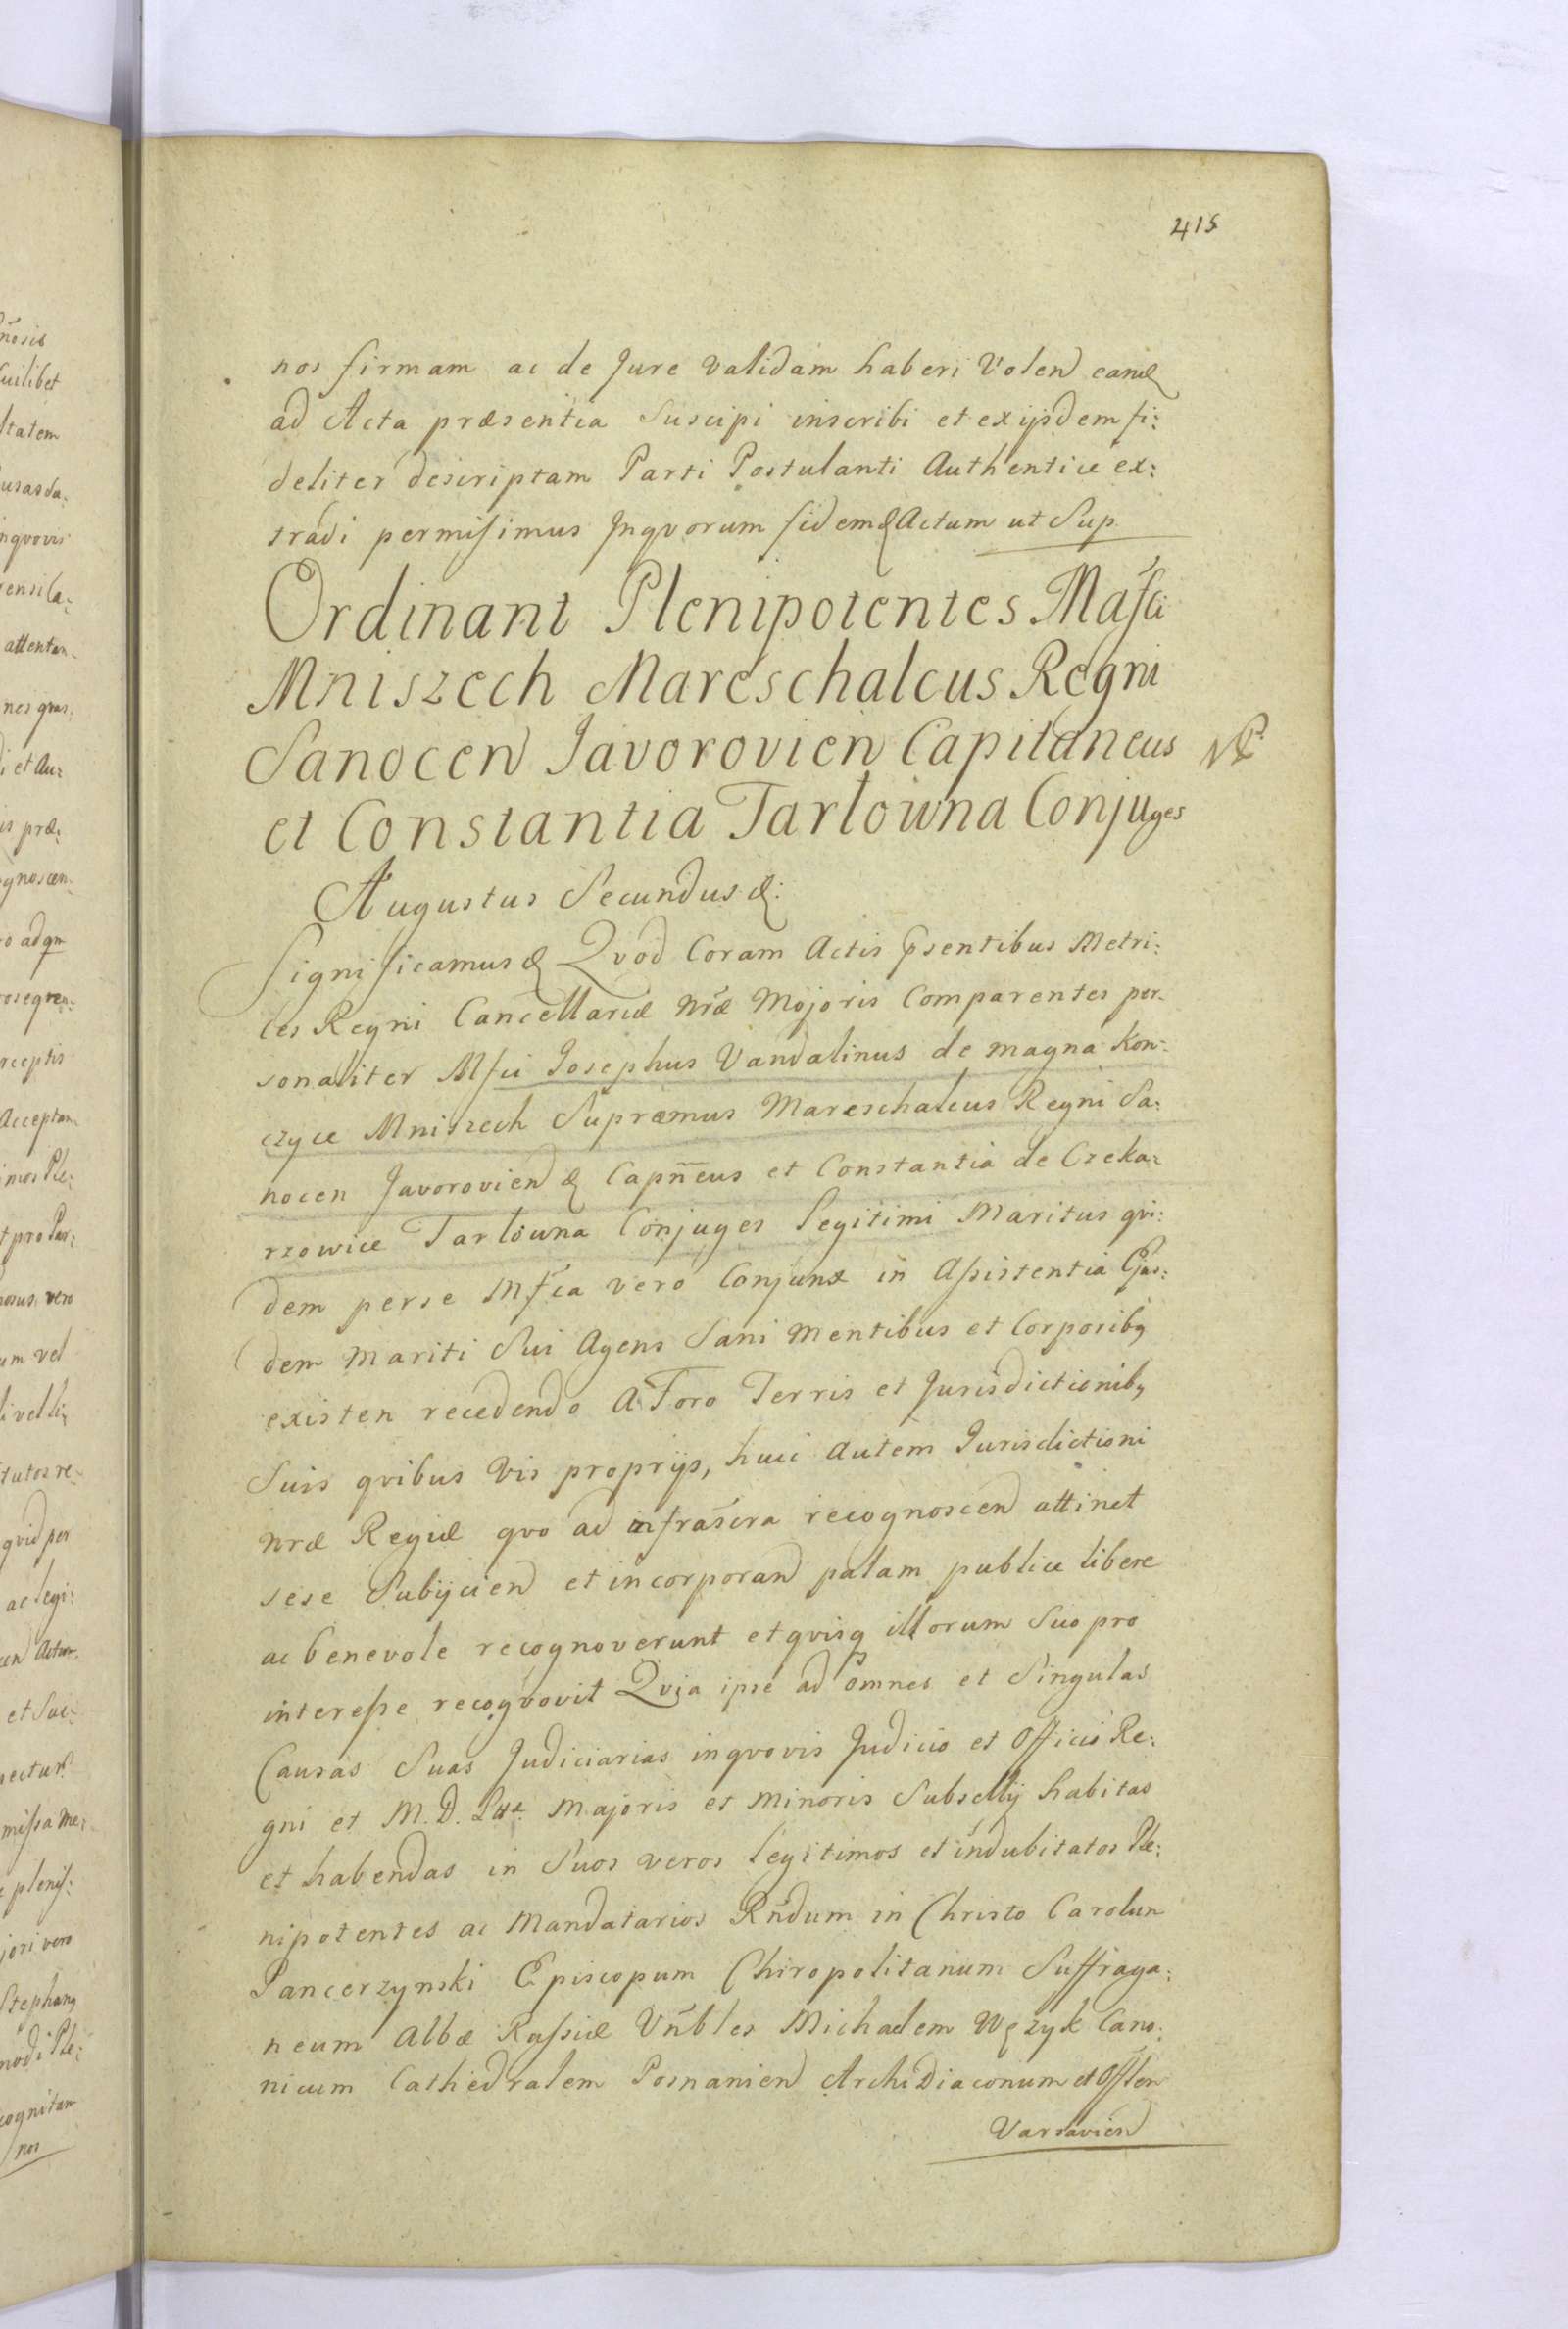 415
nos firmam ac de Jure validam haberi Volen eamq
ad Acta præsentia Suscipi inscribi et ex ijsdem fi:
deliter descriptam Parti Postulanti Authentice ex:
tradi permisimus Inqvorum fidem & Actum ut Sup
Ordinant Plenipotentes Mafci
Mniszech Mareschalcus Regni
Sanocen Javorovien Capitaneus
et Constantia Tarłowna Conjuges
Augustus Secundus &:
Significamus & Qvod Coram Actis Psentibus Metri:
ces Regni Cancellariæ Nræ Mojoris Comparentes per-
sonaliter Mfci Josephus Vandalinus de magna Kon:
czyce Mniszech Supræmus Mareschalcus Regni Sa:
nocen Javorovien & Capñeus et Constantia de Czeka:
rzowice Tarłowna Conjuges Legitimi Maritus qvi:
dem perse Mfca vero Conjunx in Assistentia Ejus:
dem Mariti Sui Agens Sani Mentibus et Corporibq
existen recedendo A Foro Terris et Jurisdictionibq
Suis qvibus Vis proprijs, huic Autem Jurisdictioni
Nræ Regiæ qvo ad infrascra recognoscen attinet
sese Subijcien et incorporan palam publice libere
ac benevole recognoverunt et qvisq illorum Suo pro
interesse recogvovit Qvia ipse ad omnes et Singulas
Causas Suas Judiciarias inqvovis Judicio et Officio Re:
gni et M. D. Litt. Majoris et Minoris Subsellij habitas
et habendas in Suos veros legitimos et indubitatos Ple:
nipotentes ac Mandatarios Rndum in Christo Carolum
Pancerzynski Episcopum Chiropolitanum Suffraga:
neum Albæ Russiæ Vnbles Michaelem Węzyk Cano:
nicum Cathedralem Posnanien Archidiaconum et Offlen
Varsavien